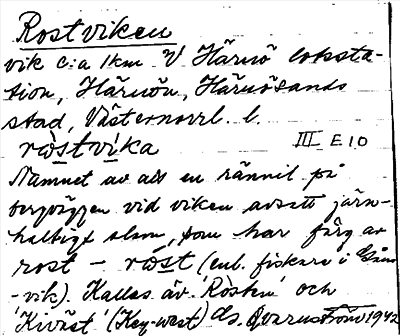 Rostviken
vik c:a 1km V Härnö lotssta-
tion, Härnön, Härnösands
stad, Västernorrl. l.
ròstvìka III E 10
Namnet av att en rännil på
bergväggen vid viken avsatt järn-
haltigt slam, som har färg av
rost – ròst (enl. fiskare i
-vik). Kallas äv. 'Rosten' och
'Kiväst' (Key-west) ds. 1942